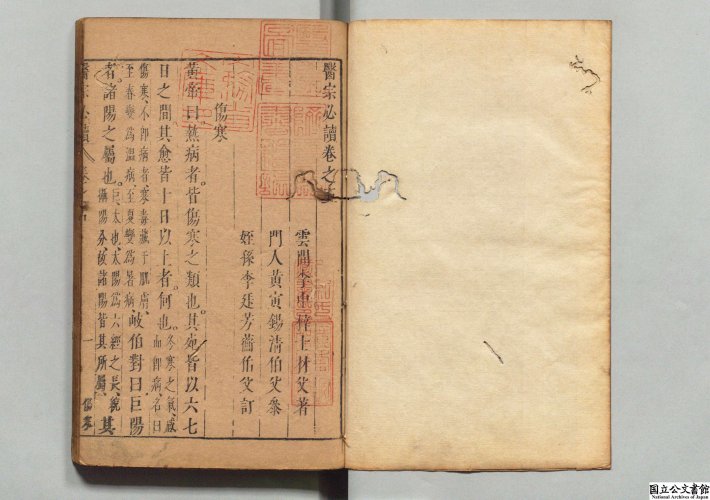 醫宗必讀卷之五
雲間李中梓士材父著
門人黃寅錫清伯父參
姪孫李廷芳蘅伯父訂
傷寒
黃帝曰熱病者皆傷寒之類也其死皆以六七
日之間其愈皆十日以上者何也冬寒之氣感而卽病名曰
傷寒不卽病者寒毒藏于肌膚
至春變爲溫病至夏變爲暑病岐伯對曰巨陽
者諸陽之屬也巨太也太陽爲六經之長統攝陽分故諸陽皆其所屬其
醫宗必讀 卷之
一 傷寒
国立公文書館
National Archives of Japan